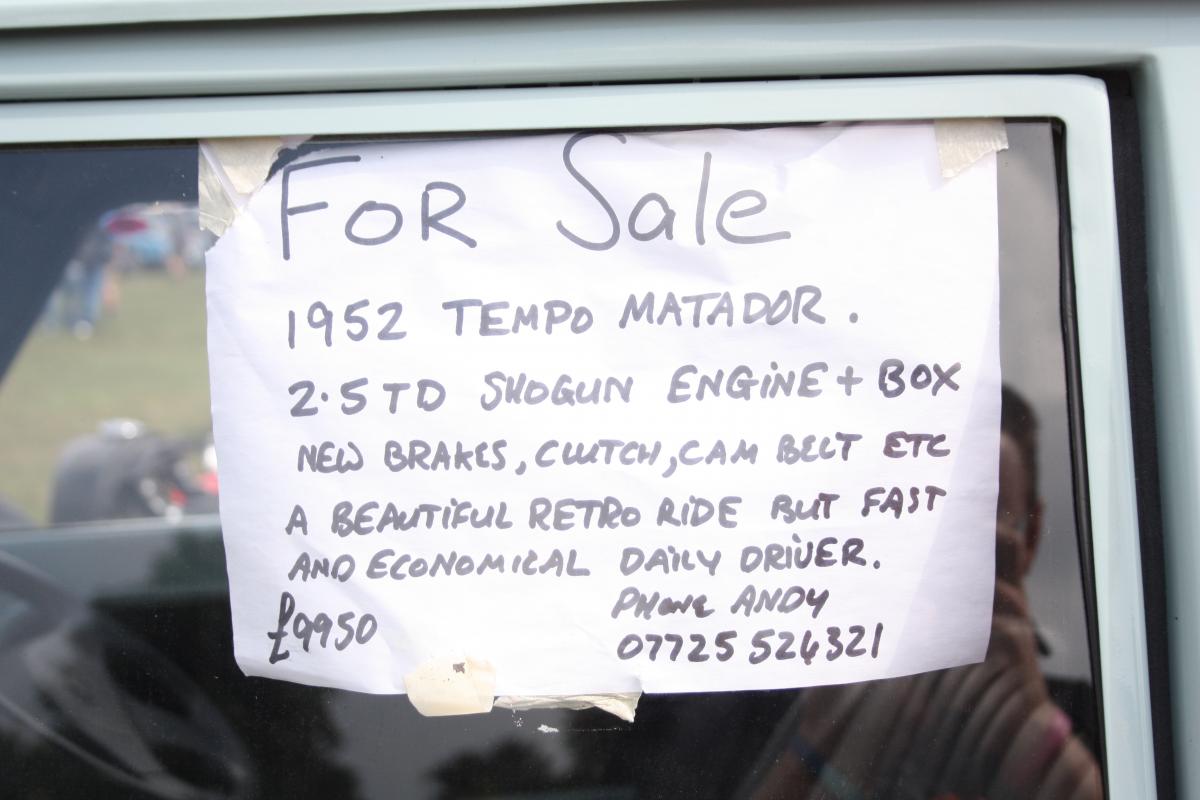 FOR Sale
1952 TEMPO MATADOR.
2.5TD SHOGUN ENGINE + BOX
NEW BRAKES, CLUTCH, CAM BELT ETC
A BEAUTIFUL RETRO RIDE BUT FAST
AND ECONOMICAL DAILY DRIVER.
£9950
PHONE ANDY
07725 524321